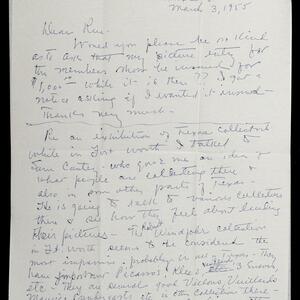 March 3, 1955
Dear Rue -
Would you please be so kind
as to ask that my picture entry for
the members show be insured for
$1,000 while it is there?? I got a
notice asking if I wanted it insured -
Thanks very much -
an exhibition of Texas collectors
while in Fort Worth I talked to
Sam Cantey - who gave me an idea of
what people are collecting there &
also in some other parts of Texas -
He is going to talk to various collectors
there & see how they feel about lending
their pictures - The Windfohr collection
in Ft. Worth seems to be considered the
most impressive, probably, in all of Texas - They
have important Picassos, Klees, 3
etc - They also several good Vlamincks, Vuillards
other collectors there -